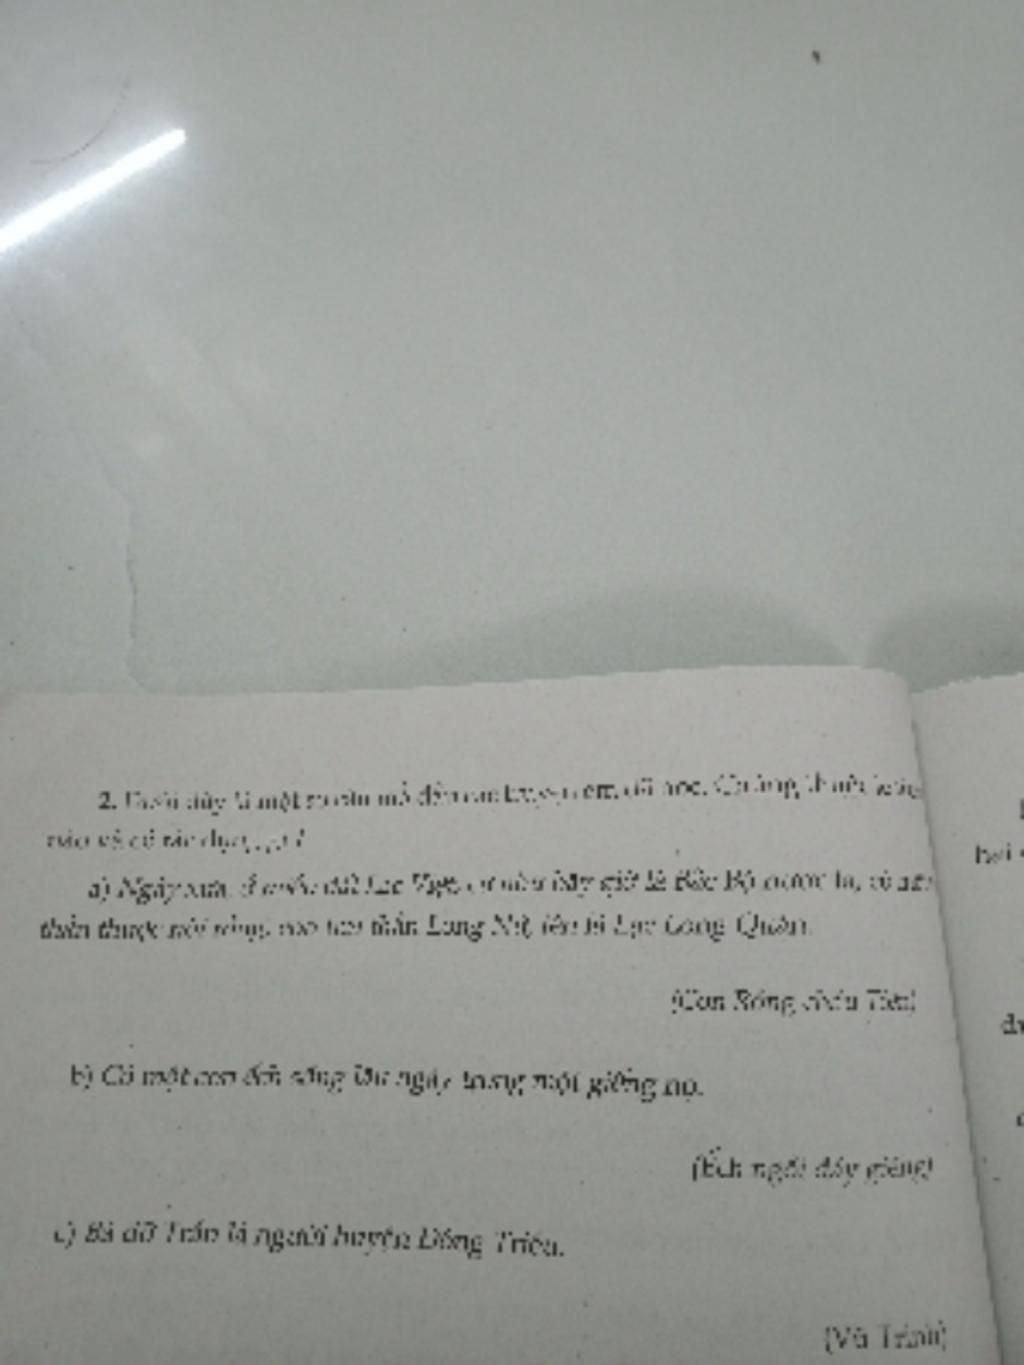 2. Dưới đây là một số câu mở đầu các truyện em đã học. Chúng thuộc kiểu
nào và có tác dụng gì?
a) Ngày xưa, ở miền đất Lạc Việt, cứ như bây giờ là Bắc Bộ nước ta, có một
thần thuộc nòi rồng, con trai thần Long Nữ, tên là Lạc Long Quân.
(Con Rồng cháu Tiên)
b) Có một con ếch sống lâu ngày trong một giếng nọ.
(Ếch ngồi đáy giếng)
c) Bà đỡ Trần là người huyện Đông Triều.
(Vũ Trinh)
hai